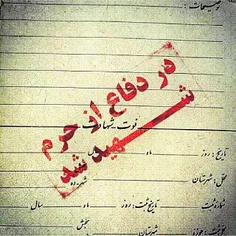 توضیحات:
در دفاع از حرم
شهید شد
فوت شهادت
تاریخ: روز ماه
محل: شهرستان
شماره ثبت تاریخ ثبت: روز ماه سال
بخش